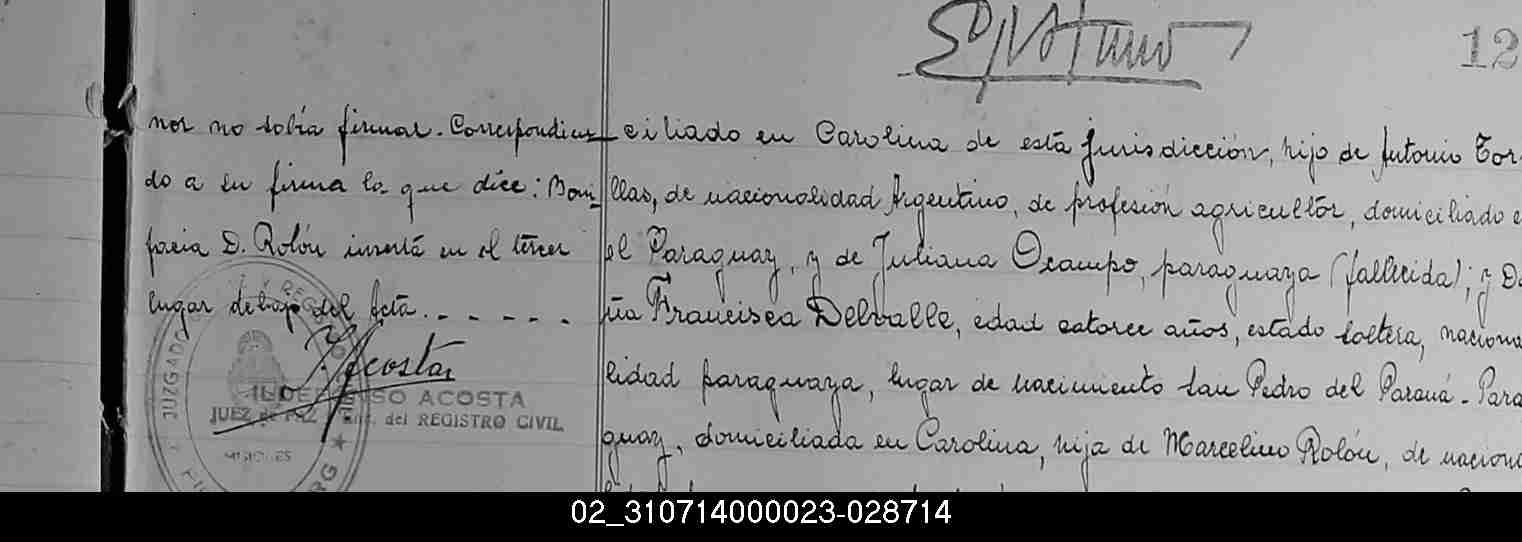 12
nor no sabía firmar. Correspondien_
do a su firma la que dice: Boni_
facia D. Rolón inserta en el tercer
lugar debajo del Acta. - - - - -
Acosta
ILDEFONSO ACOSTA
JUEZ de PAZ Enc. del REGISTRO CIVIL
JUZGADO
Y REGISTRO
MISIONES
ciliado en Carolina de esta jurisdicción, hijo de Antonio Tor
llas, de nacionalidad Argentino, de profesión agricultor, domiciliado e
el Paraguay, y de Juliana Ocampo, paraguaya (fallecida); y Do
ña Francisca Delvalle, edad catorce años, estado soltera, naciona
lidad paraguaya, lugar de nacimiento San Pedro del Paraná - Para
guay, domiciliada en Carolina, hija de Marcelino Rolón, de nacion
02_310714000023-028714